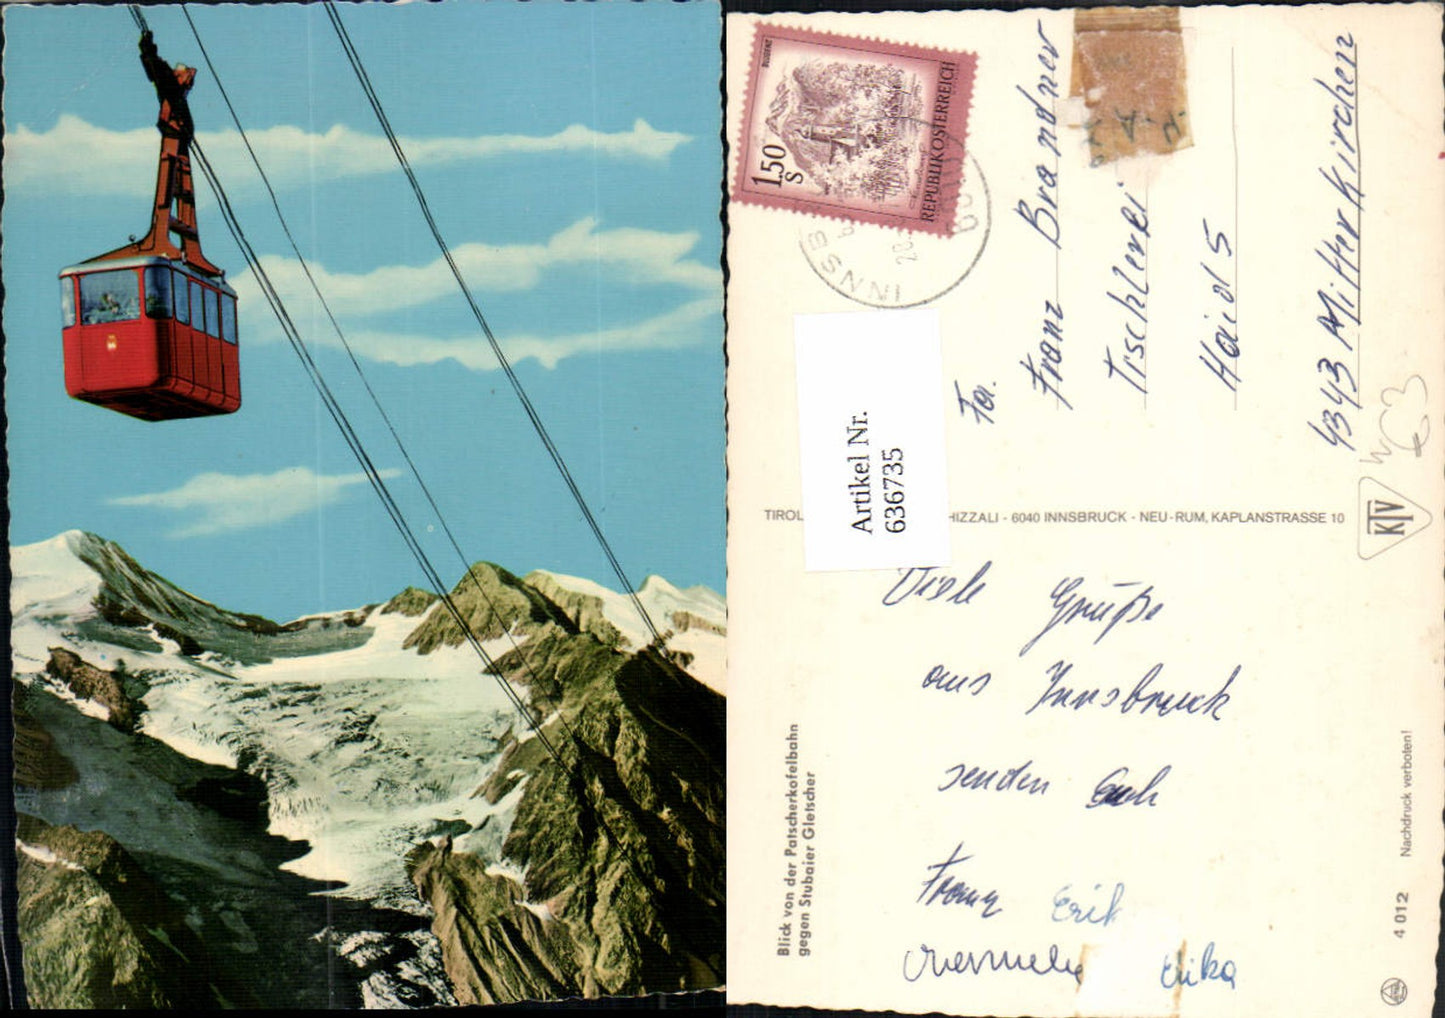 BLUDENZ
1.50
S
REPUBLIK OSTERREICH
INNSB
Fa.
Franz Brandner
Tischlerei
Haid 5
4343 Mitterkirchen
W63
Artikel Nr.
636735
TIROL HIZZALI - 6040 INNSBRUCK - NEU-RUM, KAPLANSTRASSE 10
KTV
Viele Grüße
aus Innsbruck
senden Euch
Franz Erik
Erika
Blick von der Patscherkofelbahn
gegen Stubaier Gletscher
Nachdruck verboten!
4 012